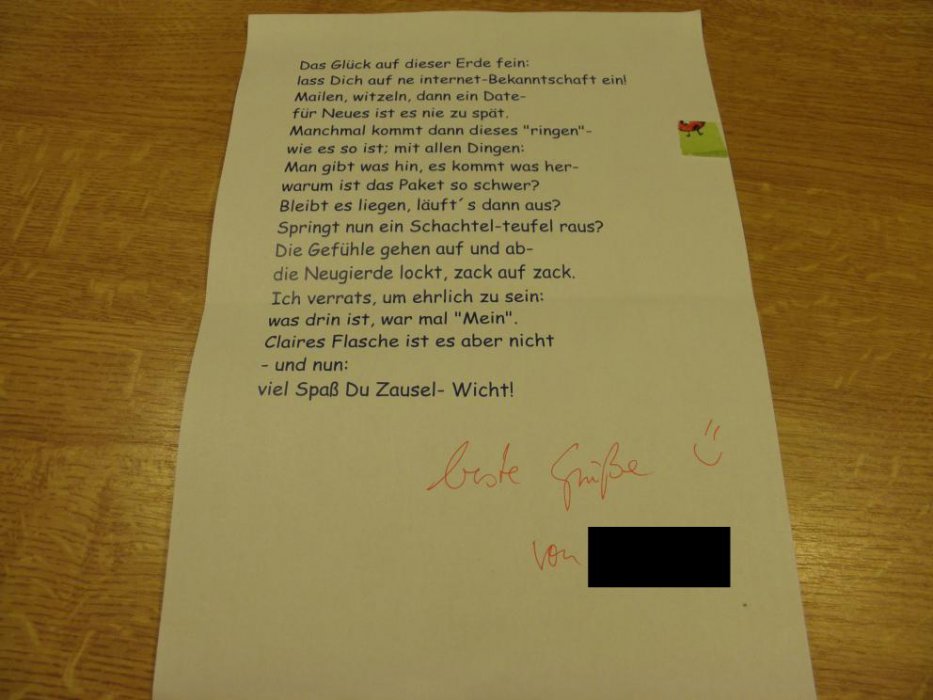 Das Glück auf dieser Erde fein:
lass Dich auf ne internet-Bekanntschaft ein!
Mailen, witzeln, dann ein Date-
für Neues ist es nie zu spät.
Manchmal kommt dann dieses "ringen"-
wie es so ist; mit allen Dingen:
Man gibt was hin, es kommt was her-
warum ist das Paket so schwer?
Bleibt es liegen, läuft´s dann aus?
Springt nun ein Schachtel-teufel raus?
Die Gefühle gehen auf und ab-
die Neugierde lockt, zack auf zack.
Ich verrats, um ehrlich zu sein:
was drin ist, war mal "Mein".
Claires Flasche ist es aber nicht
- und nun:
viel Spaß Du Zausel- Wicht!
beste Grüße
von